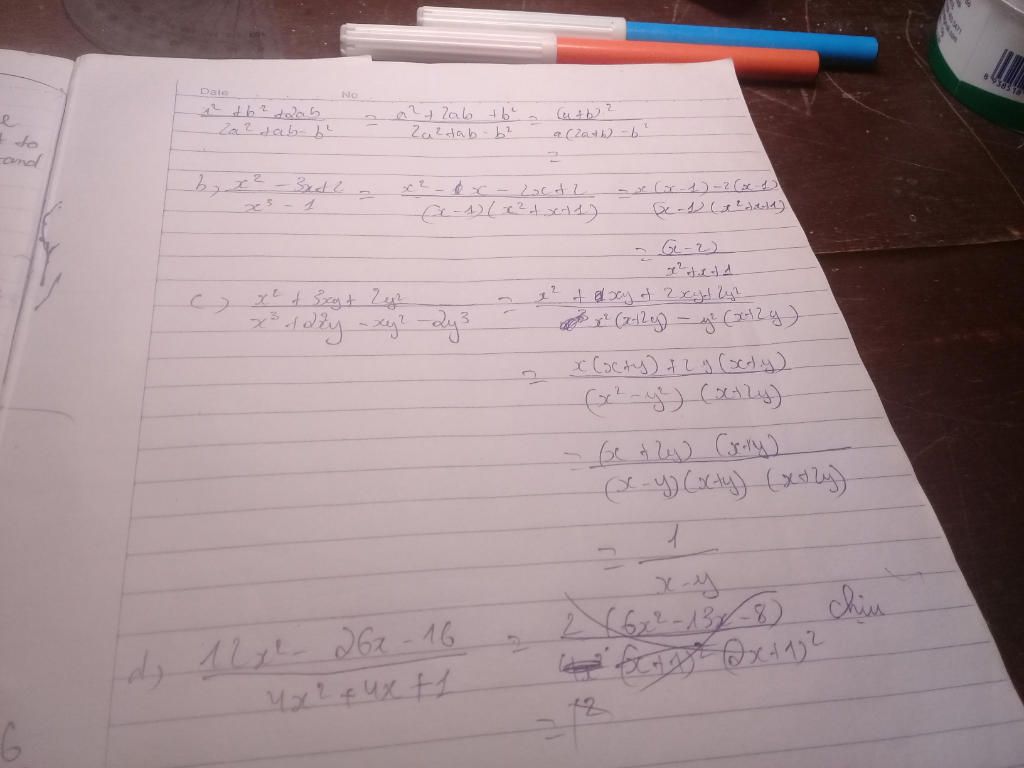 Date No
a² + b² + 2ab / 2a² + ab - b² = a² + 2ab + b² / 2a² + ab - b² = (a+b)² / a(2a+b) - b²
=
b, x² - 3x + 2 / x³ - 1 = x² - 1x - 2x + 2 / (x-1)(x² + x + 1) = x(x-1) - 2(x-1) / (x-1)(x² + x + 1)
= (x-2) / x² + x + 1
c, x² + 3xy + 2y² / x³ + 2x²y - xy² - 2y³ = x² + 1xy + 2xy + 2y² / x²(x+2y) - y²(x+2y)
= x(x+y) + 2y(x+y) / (x² - y²) (x+2y)
= (x + 2y) (x+y) / (x-y)(x+y) (x+2y)
= 1 / x-y
d, 12x² - 26x - 16 / 4x² + 4x + 1 = 2 (6x² - 13x - 8) / (x+1)² (2x+1)² chịu
=
6